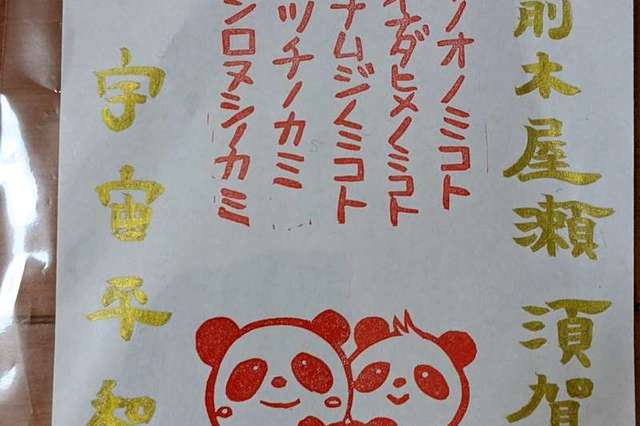 前木屋瀬 須賀
ノオノミコト
ダヒメノミコト
ナムジノミコト
ツチノカミ
シロヌシノカミ
宇宙平和